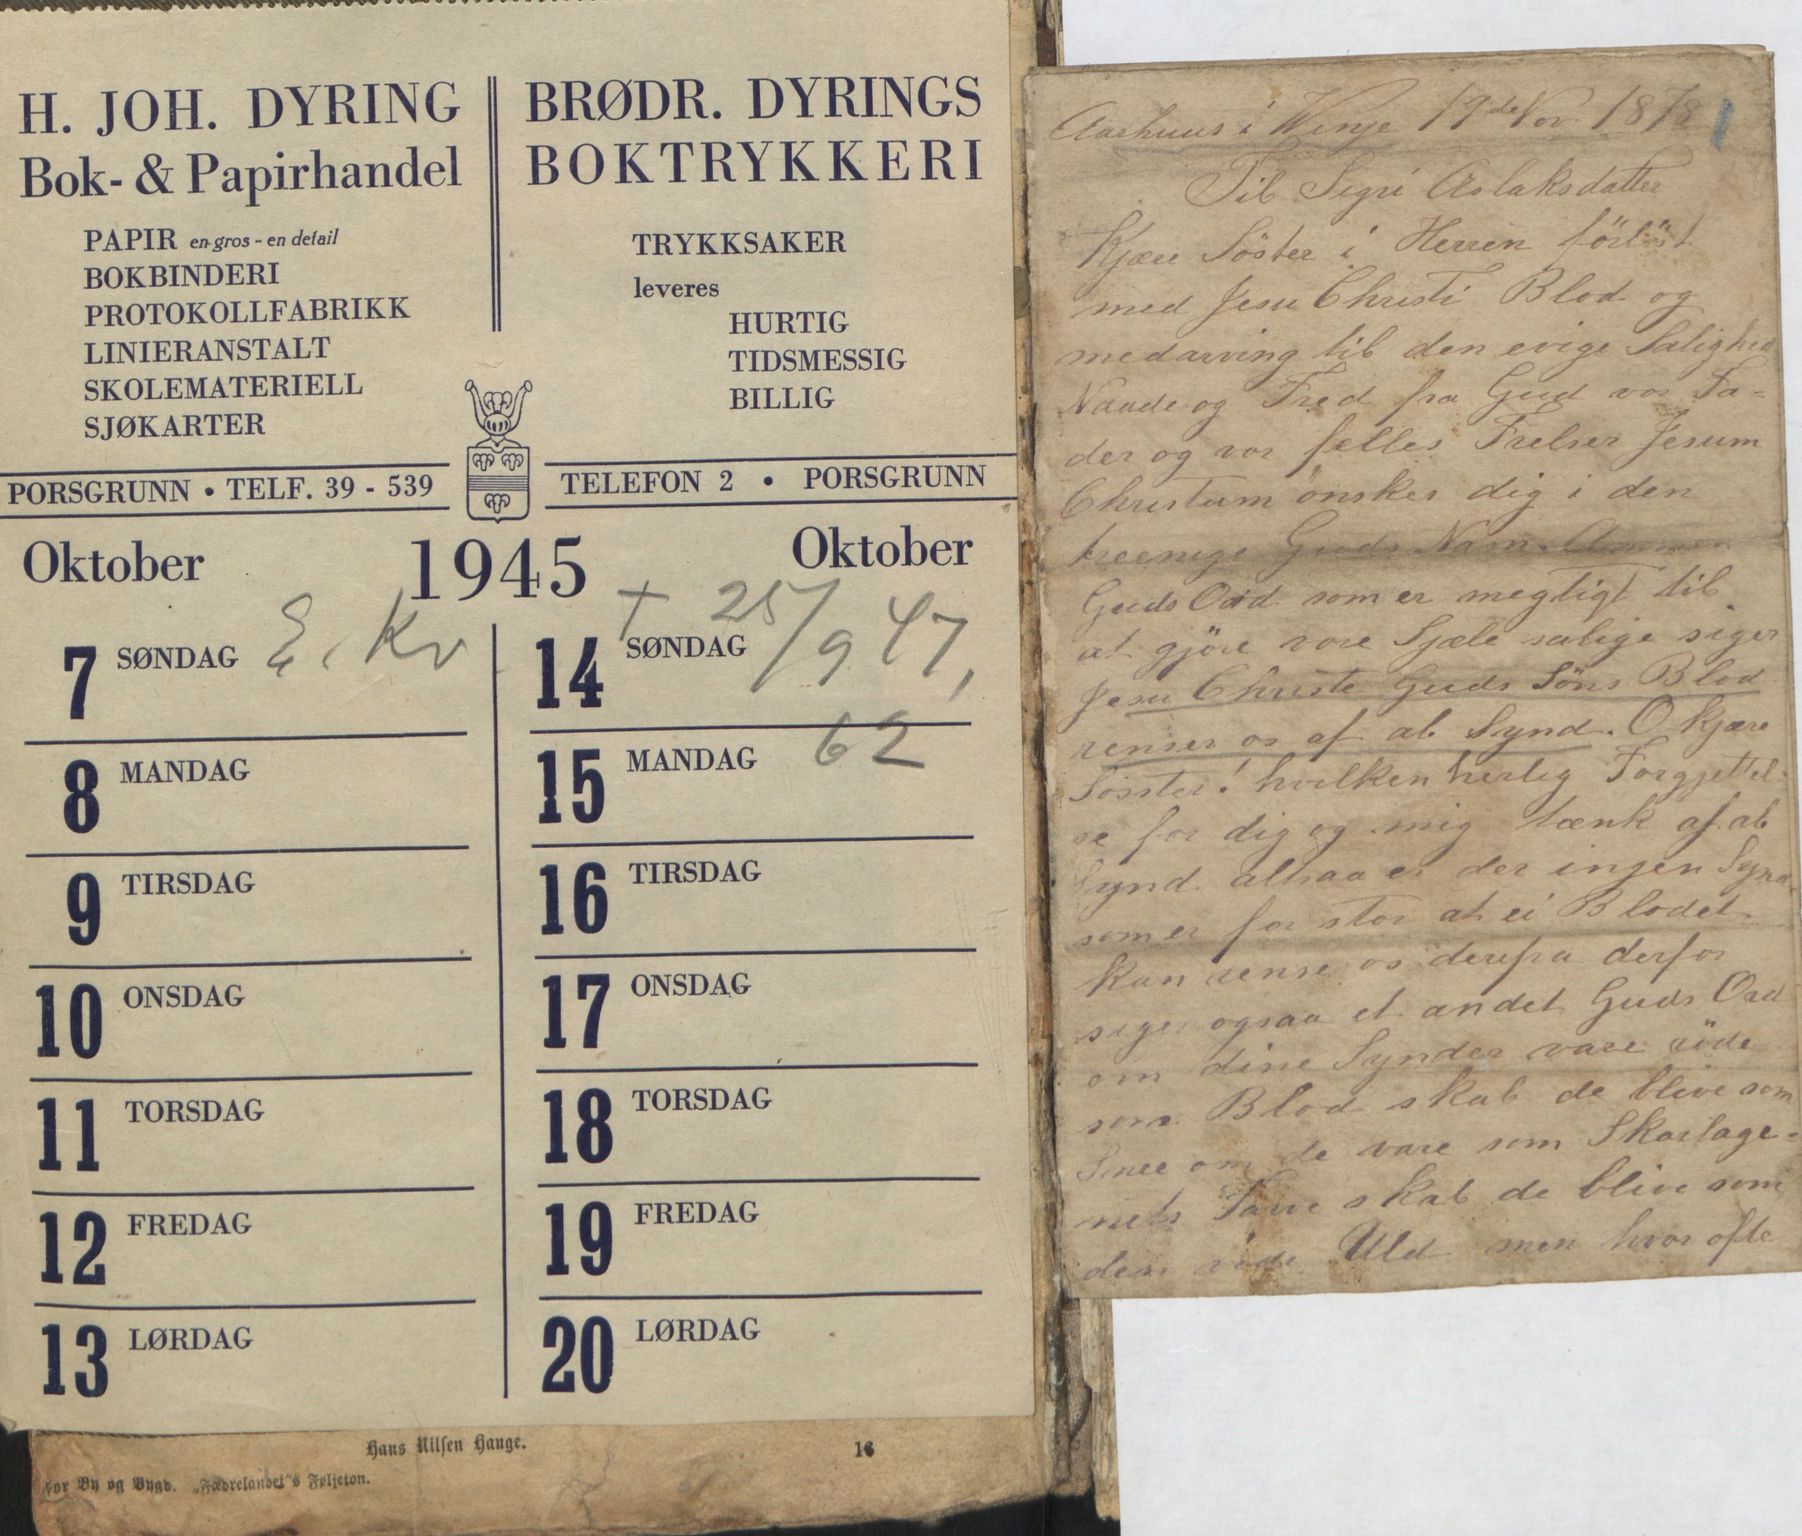 H. JOH. DYRING
Bok- & Papirhandel
PAPIR en gros - en detail
BOKBINDERI
PROTOKOLLFABRIKK
LINIERANSTALT
SKOLEMATERIELL
SJØKARTER
PORSGRUNN • TELF. 39 - 539
BRØDR. DYRINGS
BOKTRYKKERI
TRYKKSAKER
leveres
HURTIG
TIDSMESSIG
BILLIG
TELEFON 2 • PORSGRUNN
Oktober 1945 Oktober
7 SØNDAG E. Kv
8 MANDAG
9 TIRSDAG
10 ONSDAG
11 TORSDAG
12 FREDAG
13 LØRDAG
+ 25/9 47,
14 SØNDAG
62
15 MANDAG
16 TIRSDAG
17 ONSDAG
18 TORSDAG
19 FREDAG
20 LØRDAG
Hans Nilsen Hauge. 16
For By og Bygd. „Fædrelandet"s Føljeton.
Aarhuus i Winje 19de Nov 1878 1
Til Sigri Aslaksdatter
Kjære Söster i Herren förlöst
med Jesu Christi Blod og
medarving til den evige Salighed
Naade og Fred fra Gud vor Fa-
der og vor felles Frelser Jesum
Christum onskes dig i den
treenige Guds Navn. Ammen
Guds Ord som er megtigt til
at gjöre vore Sjæle salige siger
Jesu Christi Guds Söns Blod
renser os af al Synd. O kjære
Sösster! hvilken herlig Forgjettel-
se for dig og mig tænk af al
Synd altsaa er der ingen Synd
som er for stor at ei Blodet
kan rense os derifra derfor
siger ogsaa et andet Guds Ord
om dine Synder vare röde
som Blod skal de blive som
Snee om de vare som Skarlage-
nets Farve skal de blive som
den Uld men hvor ofte